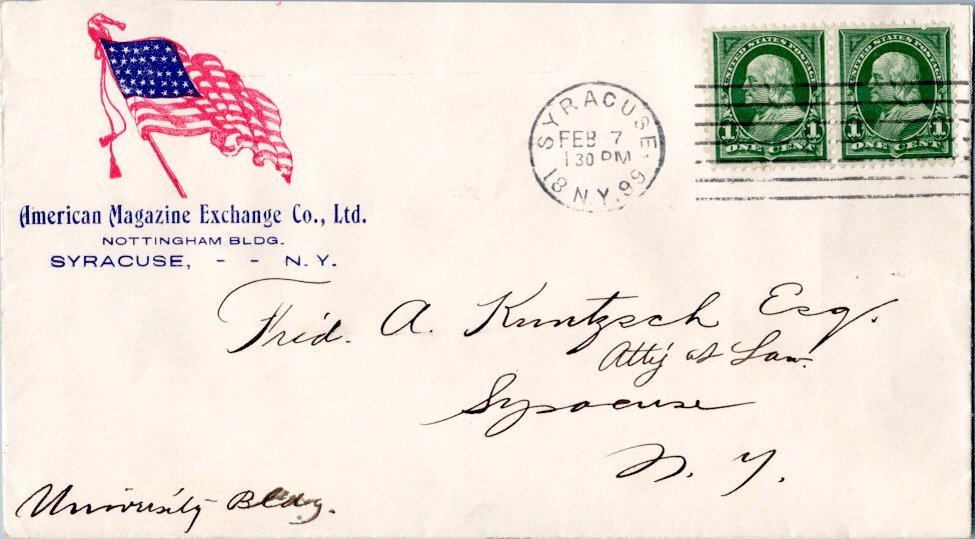 American Magazine Exchange Co., Ltd.
NOTTINGHAM BLDG.
SYRACUSE, - - N. Y.
SYRACUSE,
FEB 7
1 30 PM
18 N.Y. 99
UNITED STATES POSTAGE
1 1
ONE CENT
UNITED STATES POSTAGE
1 1
ONE CENT
Fred. A. Kuntzsch Esq.
Atty at Law.
Syracuse
N. Y.
University Bldg.